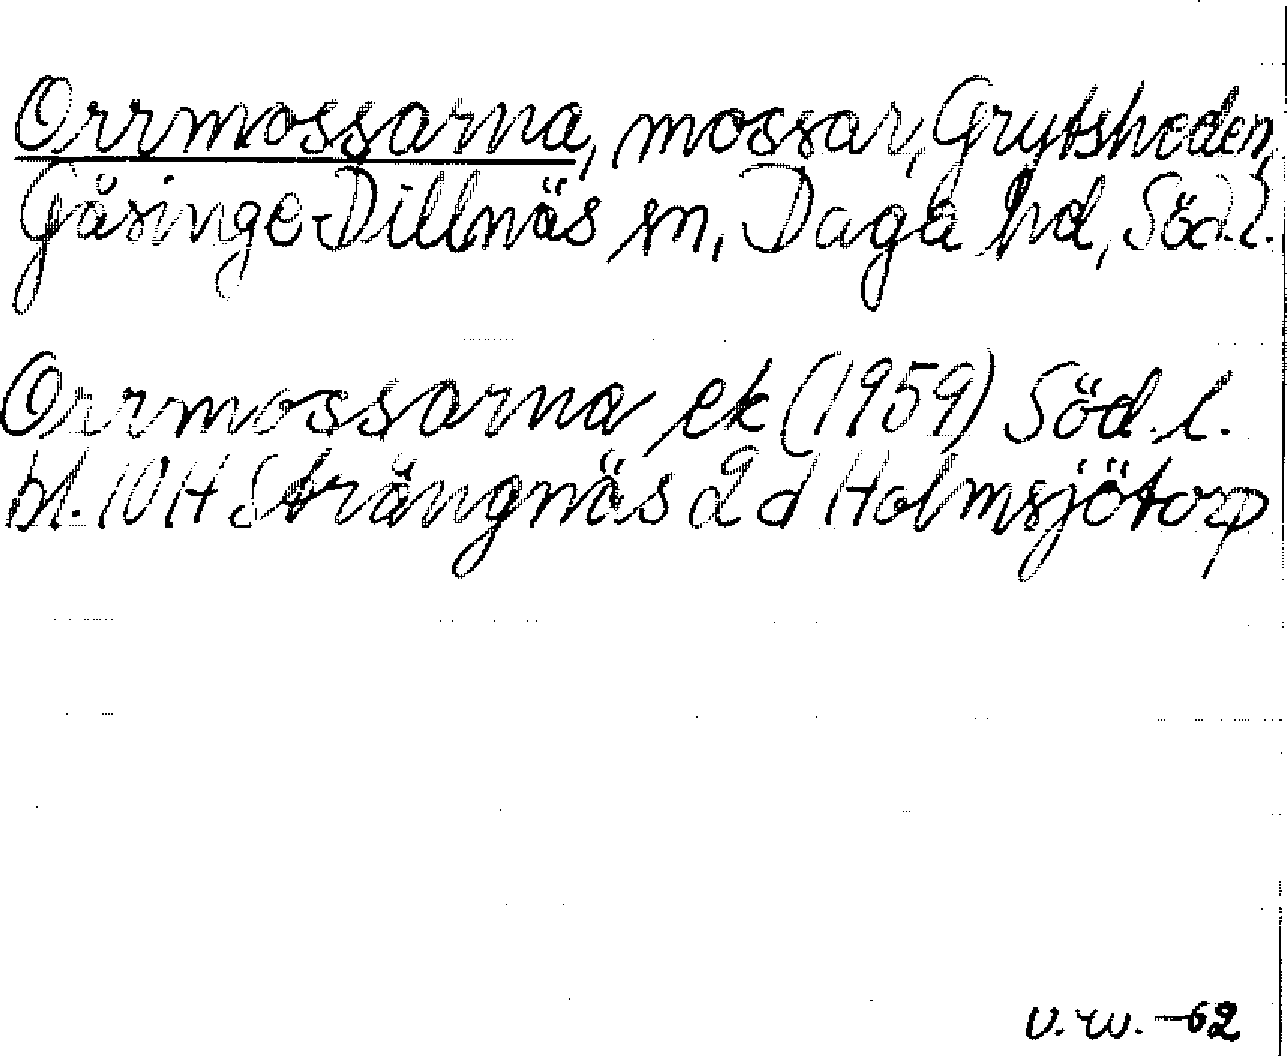 Orrmossarna, mossar, Grytsheden,
Gåsinge-Dillnäs sn, Daga hd, Söd. l.
Orrmossarna ek (1959) Söd. l.
bl. 10 H Strängnäs 2 d Holmsjötorp
V. W. -62